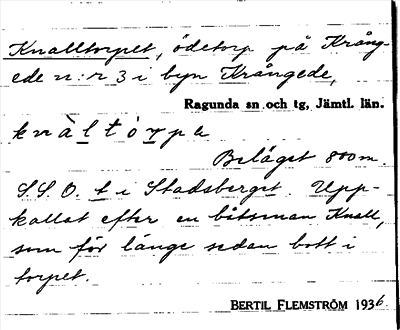 Knalltorpet, ödetorp på Krång-
ede n:r 3 i byn Krångede,
Ragunda sn och tg, Jämtl. län.
knàltórpa
Beläget 800 m.
S.S.O. t i Stadsberget. Upp-
kallat efter en båtsman Knall,
som för länge sedan bott i
torpet.
BERTIL FLEMSTRÖM 1936